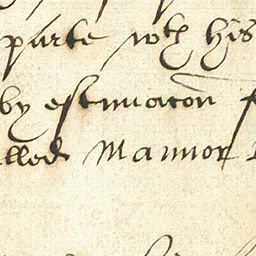 parte wth his
by estimacon
lled Mannor